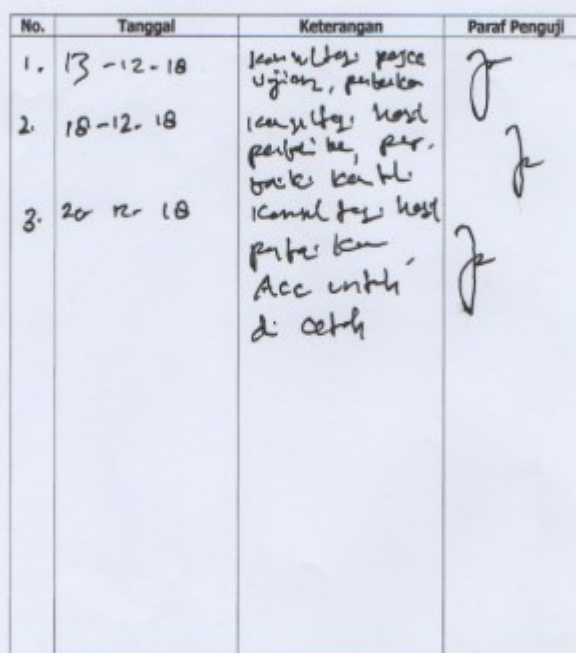 No. Tanggal Keterangan Paraf Penguji
1. 13-12-18 Konsultasi pasca
ujian, perbaikan
2. 18-12-18 Konsultasi hasil
perbaikan, per-
baiki kembali
3. 20-12-18 Konsultasi hasil
perbaikan,
Acc untuk
di cetak